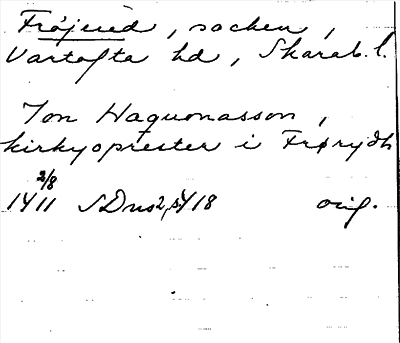 Fröjered, socken,
Vartofta hd, Skarab. l.
Jon Haquonasson,
kirkyoprester i Frørydh
2/8
1411 SDns 2, s 418 orig.